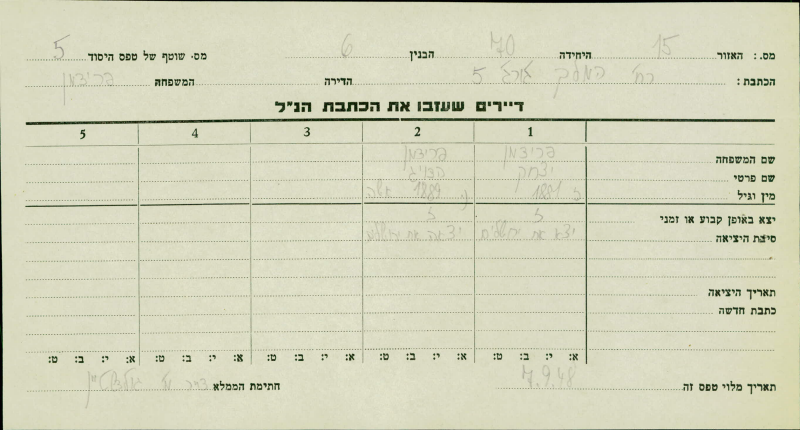 מס. : האזור 15 היחידה 70 הבנין 6 מס. שוטף של טפס היסוד 5
הכתבת : רח' המלך ג'ורג' 5 הדירה המשפחה פרידמן
דיירים שעזבו את הכתבת הנ"ל
1 2 3 4 5
שם המשפחה פרידמן פרידמן
שם פרטי יצחק
מין וגיל ז 1881 נ 1889 אשה
יצא באופן קבוע או זמני ז ז
סיבת היציאה יצא את ירושלים יצאה את ירושלים
תאריך היציאה
כתבת חדשה
א: י: ב: ט: א: י: ב: ט: א: י: ב: ט: א: י: ב: ט: א: י: ב: ט:
תאריך מלוי טפס זה 7.9.48 חתימת הממלא